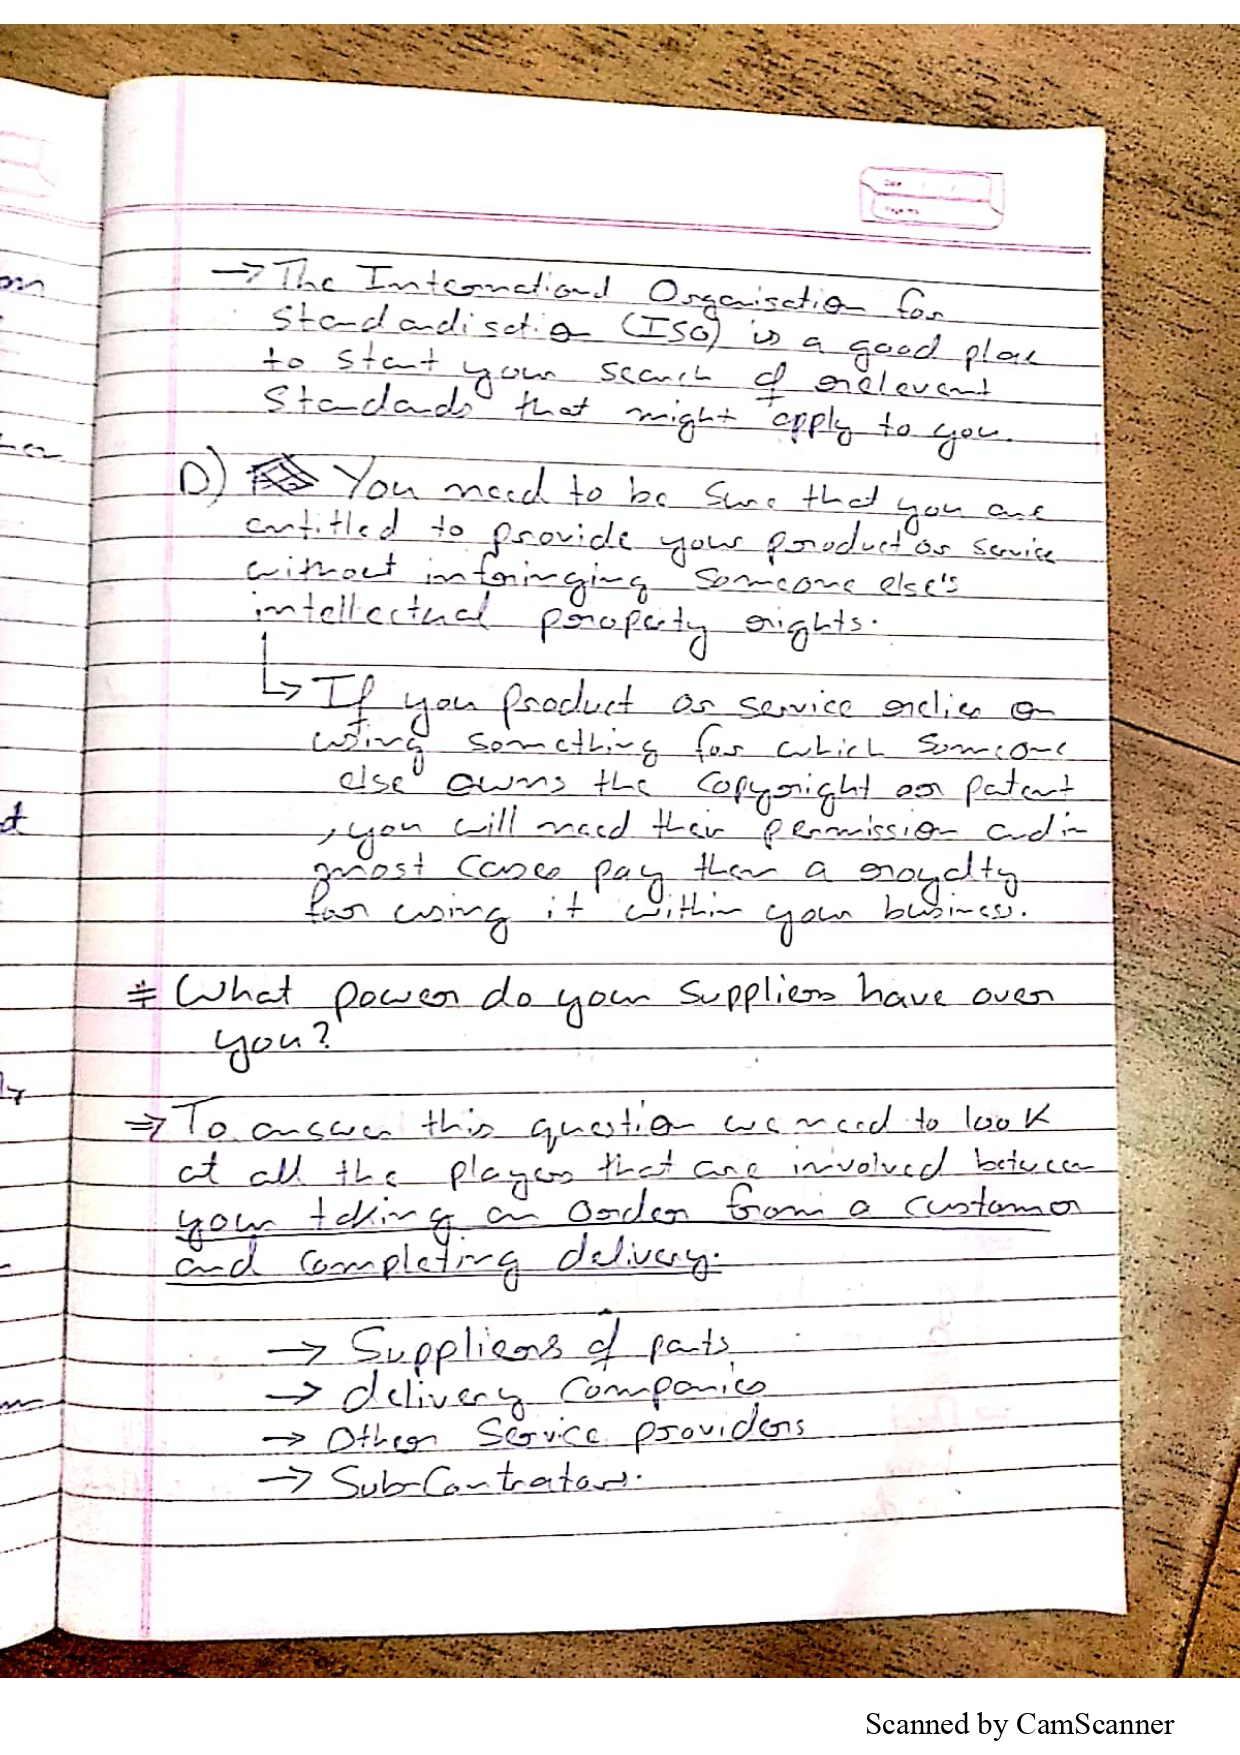 Date
Page No.
→ The International Organisation for
Standardisation (ISO) is a good place
to start your search of relevent
Standards that might apply to you.
D) You need to be sure that you are
entitled to provide your product or service
without infringing someone else's
intellectual property rights.
↳ If you product or service relies on
using something for which someone
else owns the copyright or patent
, you will need their permission and in
most cases pay them a royalty
for using it within your business.
# What power do your suppliers have over
you?
⇒ To answer this question we need to look
at all the players that are involved between
your taking an order from a customer
and completing delivery.
→ Suppliers of parts
→ delivery companies
→ Other Service providers
→ Sub-Contrators.
Scanned by CamScanner